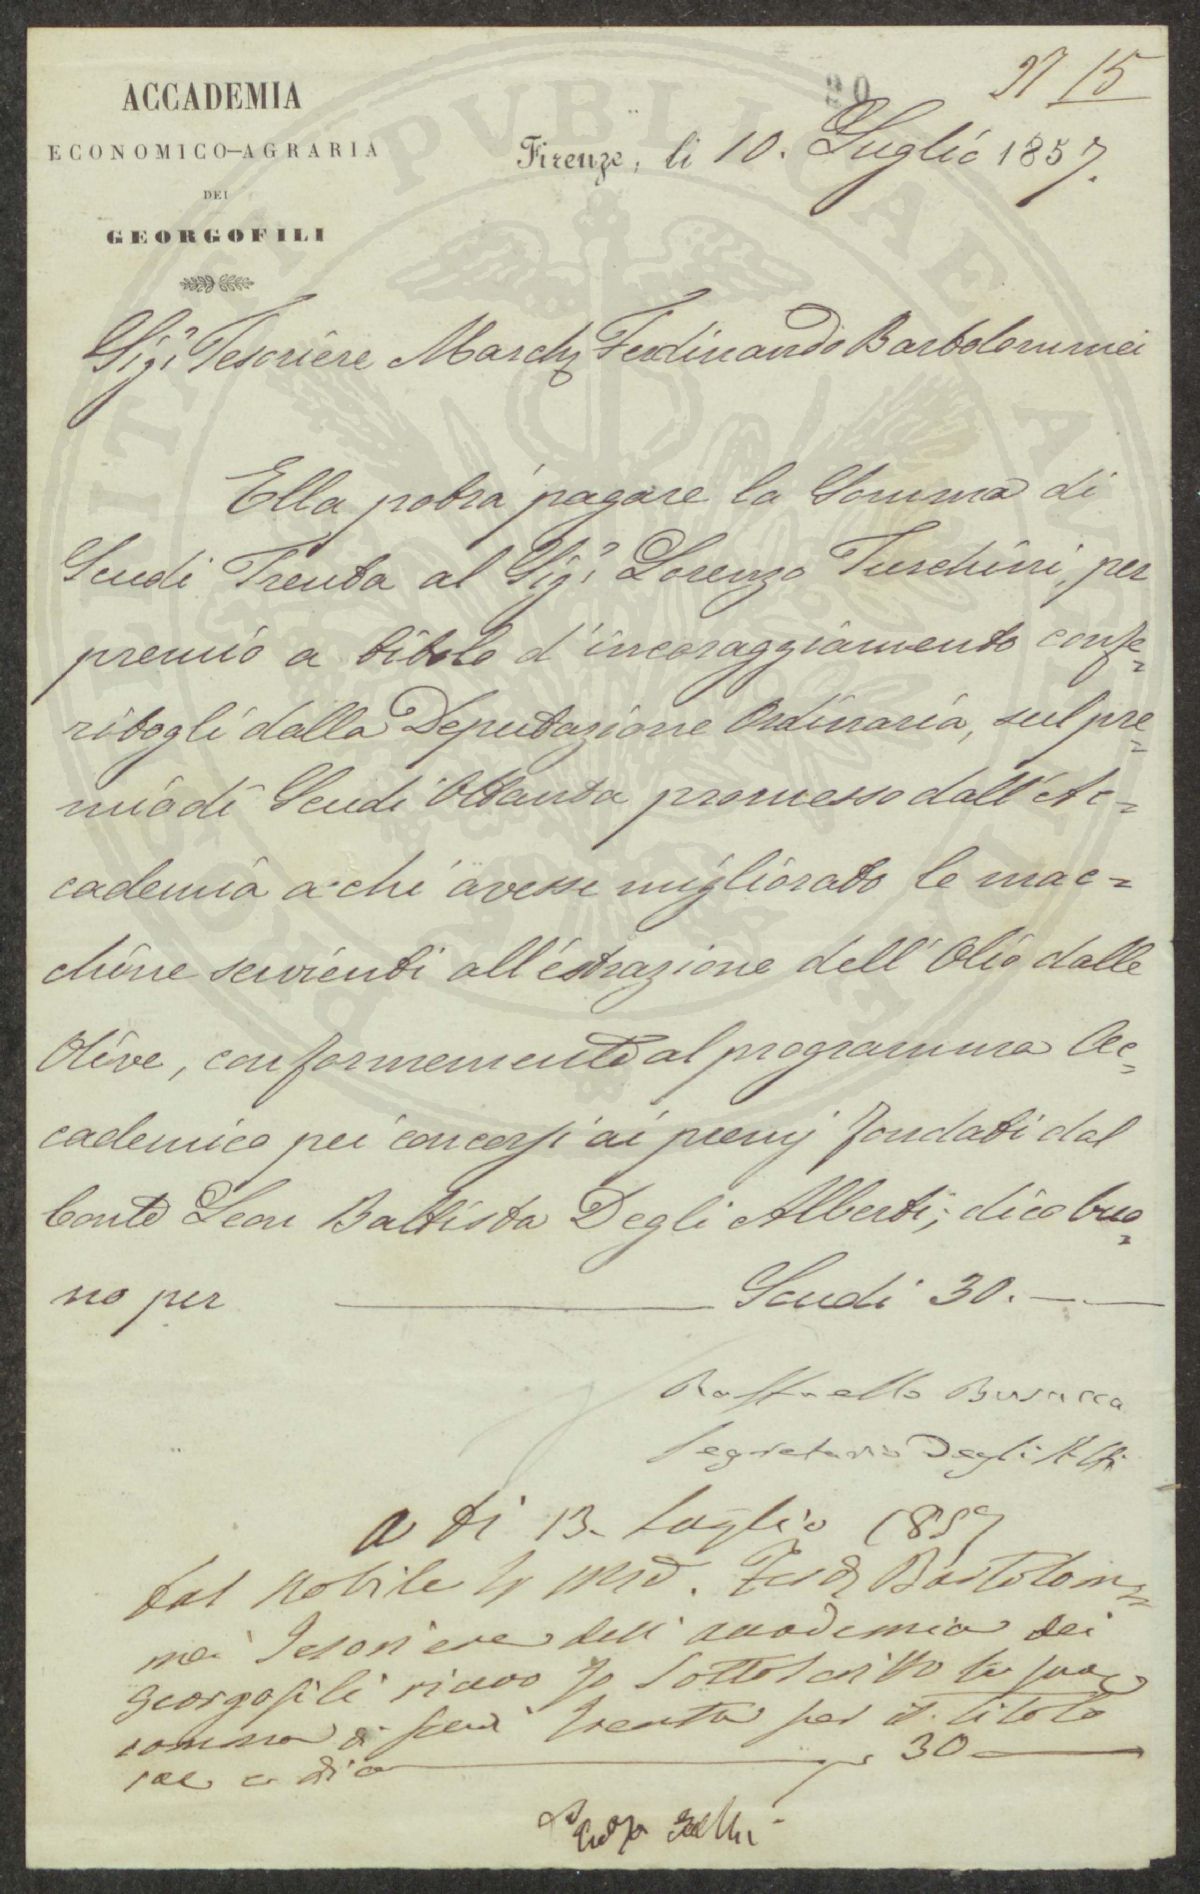 27 15
20
ACCADEMIA
ECONOMICO-AGRARIA
DEI
GEORGOFILI
Firenze, li 10. Luglio 1857.
Sig.r Tesoriere March. Ferdinando Bartolommei
Ella potrà pagare la Somma di
Scudi Trenta al Sig.r Lorenzo Turchini, per
premio a titolo d'incoraggiamento confe=
ritogli dalla Deputazione Ordinaria, sul pre=
mio di Scudi Ottanta promesso dall'Ac=
cademia a chi avesse migliorato le mac=
chine servienti all'estrazione dell'Olio dalle
Olive, conformemente al programma Ac=
cademico pei concorsi ai premj fondati dal
Conte Leon Battista Degli Alberti; dico buo=
no per Scudi 30.
Raffaello Busacca
Segretario Degli Atti
a di 13. Luglio 1857
dal Nobile Ferd. Bartolom=
mei Tesoriere dell'accademia dei
Georgofili Sottoscritto la
somma di scudi trenta per il titolo
30